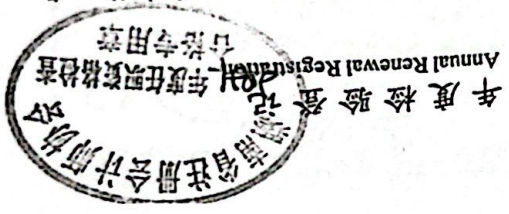 年度检验登记
Annual Renewal Registration
湖南省注册会计师协会
年度任职资格检查
合格专用章